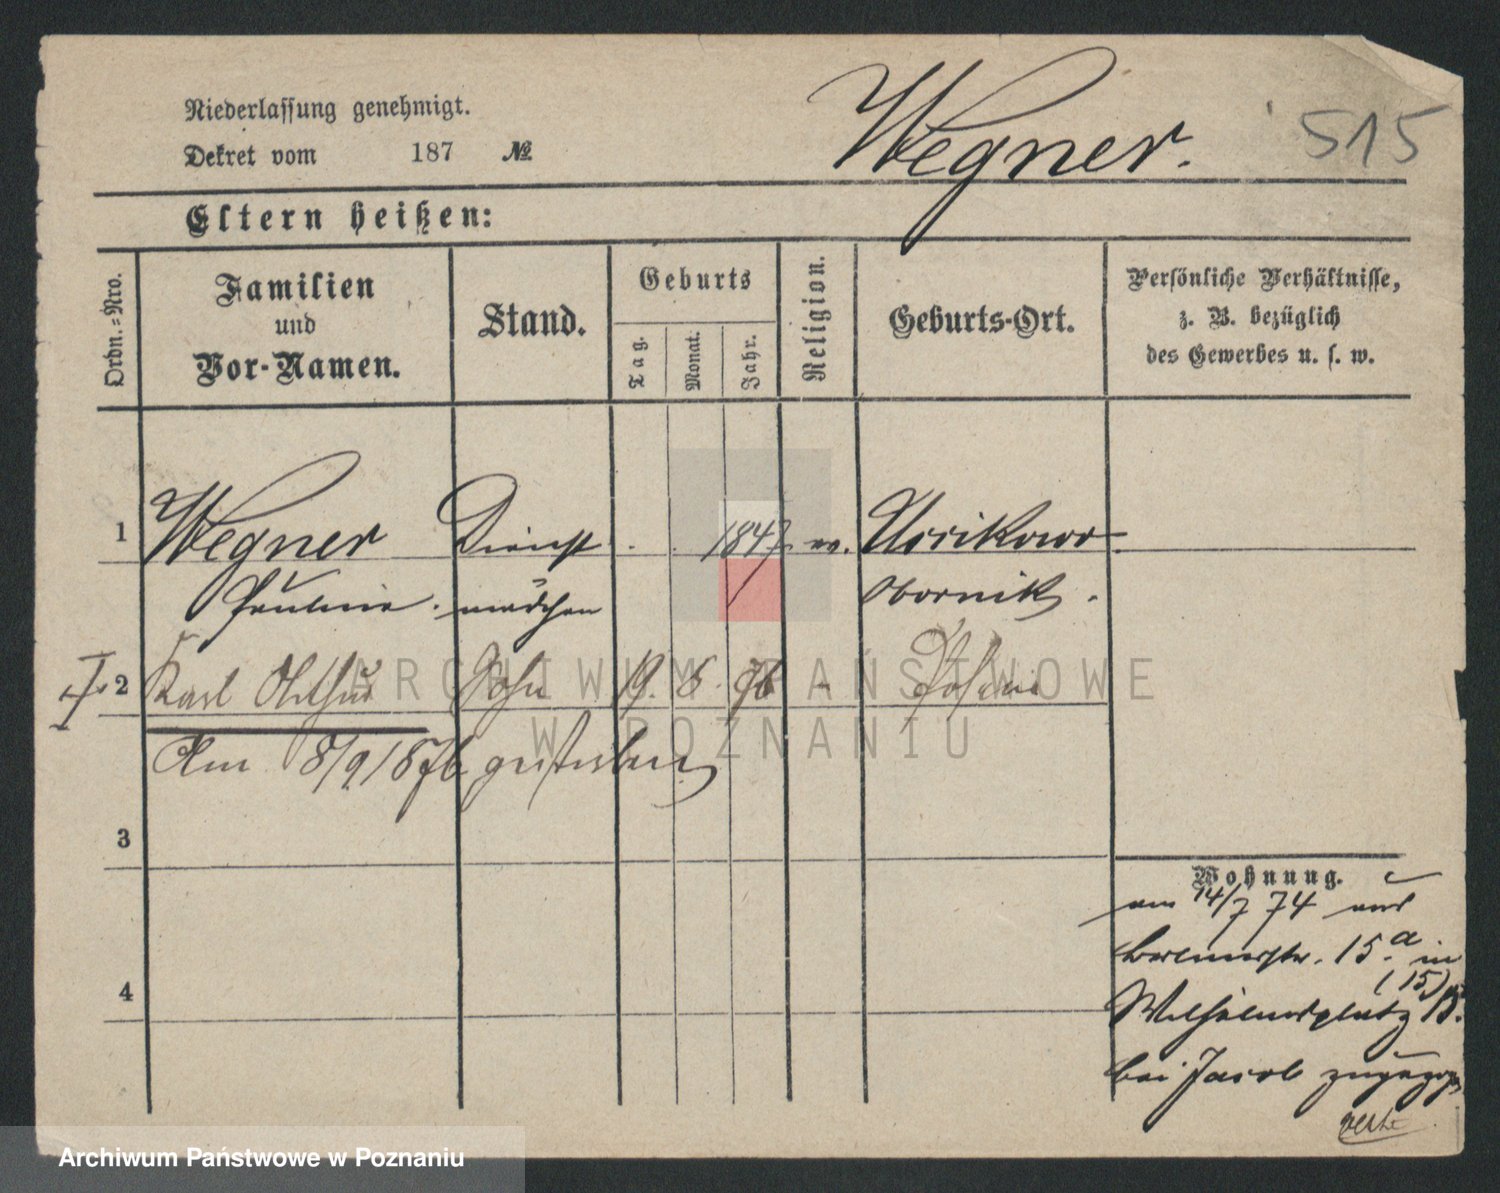 Niederlassung genehmigt.
Wegner.
515
Dekret vom 187 №
Eltern heißen:
Ordn.-Nro.
Familien
und
Vor-Namen.
Stand.
Geburts
Tag.
Monat.
Jahr.
Religion.
Geburts-Ort.
Persönliche Verhältnisse,
z. B. bezüglich
des Gewerbes u. s. w.
1 Wegner Dienst 1847
Pauline. mädchen Obornik.
2 Karl Arthur Sohn 19. 6. 76 - Posen
Am 8/9 1876 gestorben
3
Wohnung.
am 14/7 74 aus
15.a in
(15)
4
Wilhelmsplatz 15.
bei Jacob zugezogen
ARCHIWUM PAŃSTWOWE
W POZNANIU
Archiwum Państwowe w Poznaniu